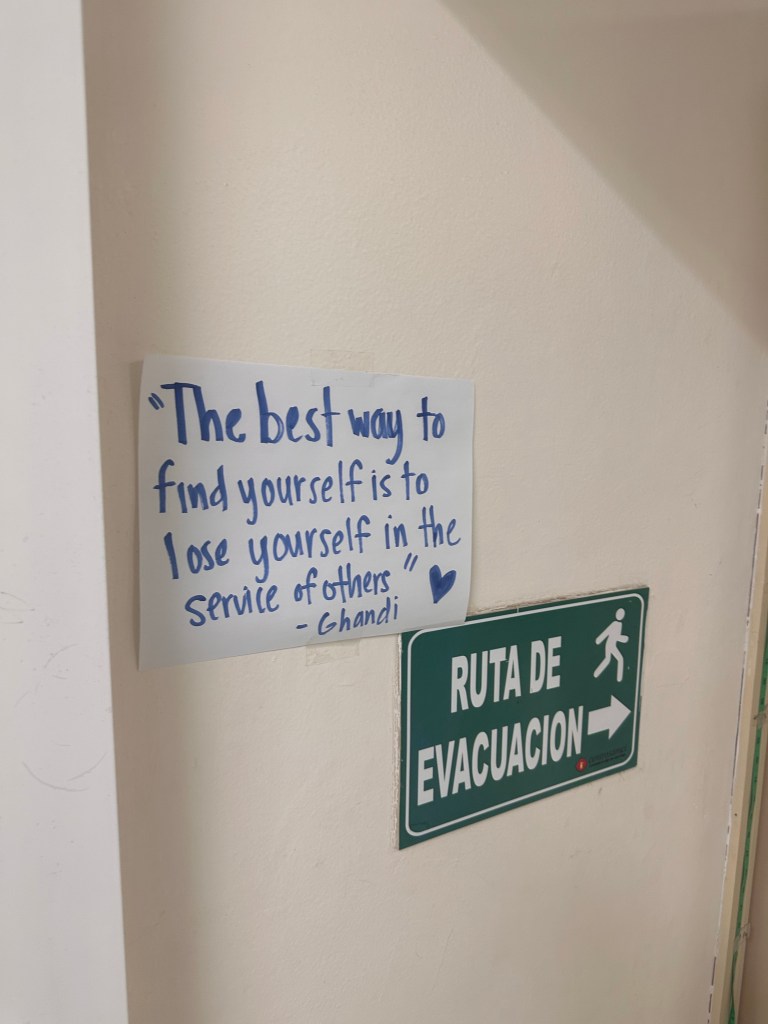 "The best way to
find yourself is to
lose yourself in the
service of others"
- Ghandi
RUTA DE
EVACUACION